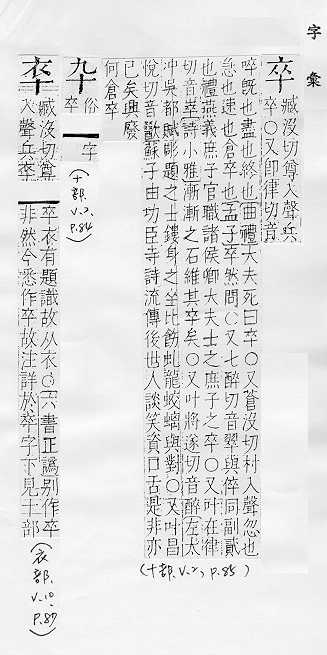 字彙
卒 臧没切尊入聲兵
卒〇又即律切音
啐旣也盡也終也曲禮大夫死曰卒〇又蒼没切村入聲忽也
急也速也倉卒也孟子卒然問〇又七醉切音翠與倅同副貳
也禮燕義庶子官職諸侯卿大夫士之庶子之卒〇又叶在律
切音崒詩小雅漸漸之石維其卒矣〇又叶將遂切音醉左太
冲吳都賦彫題之士鏤身之卒比飾虬龍蛟螭與對〇又叶昌
悅切音歠蘇子由功臣寺詩流傳後世人談笑資口舌是非亦
已矣興廢
何倉卒
(十部, V.2, P.85)
卆 俗
卒字
(十部, V.2, P.84)
卒 臧没切尊
入聲兵卒
卒衣有題識故从衣〇六書正譌别作卒
非然今悉作卒故注詳於卒字下見十部
(衣部, V.10, P.87)